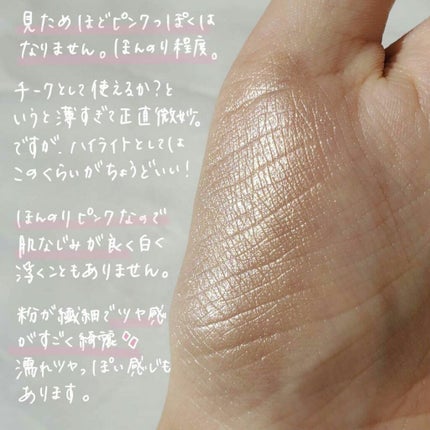 見ためほどピンクっぽくは
なりません。ほんのり程度。
チークとして使えるか？と
いうと薄すぎて正直微妙。
ですが、ハイライトとしては
このくらいがちょうどいい！
ほんのりピンクなので
肌なじみが良く白く
浮くこともありません。
粉が繊細でツヤ感
がすごく綺麗
濡れツヤっぽい感じも
あります。